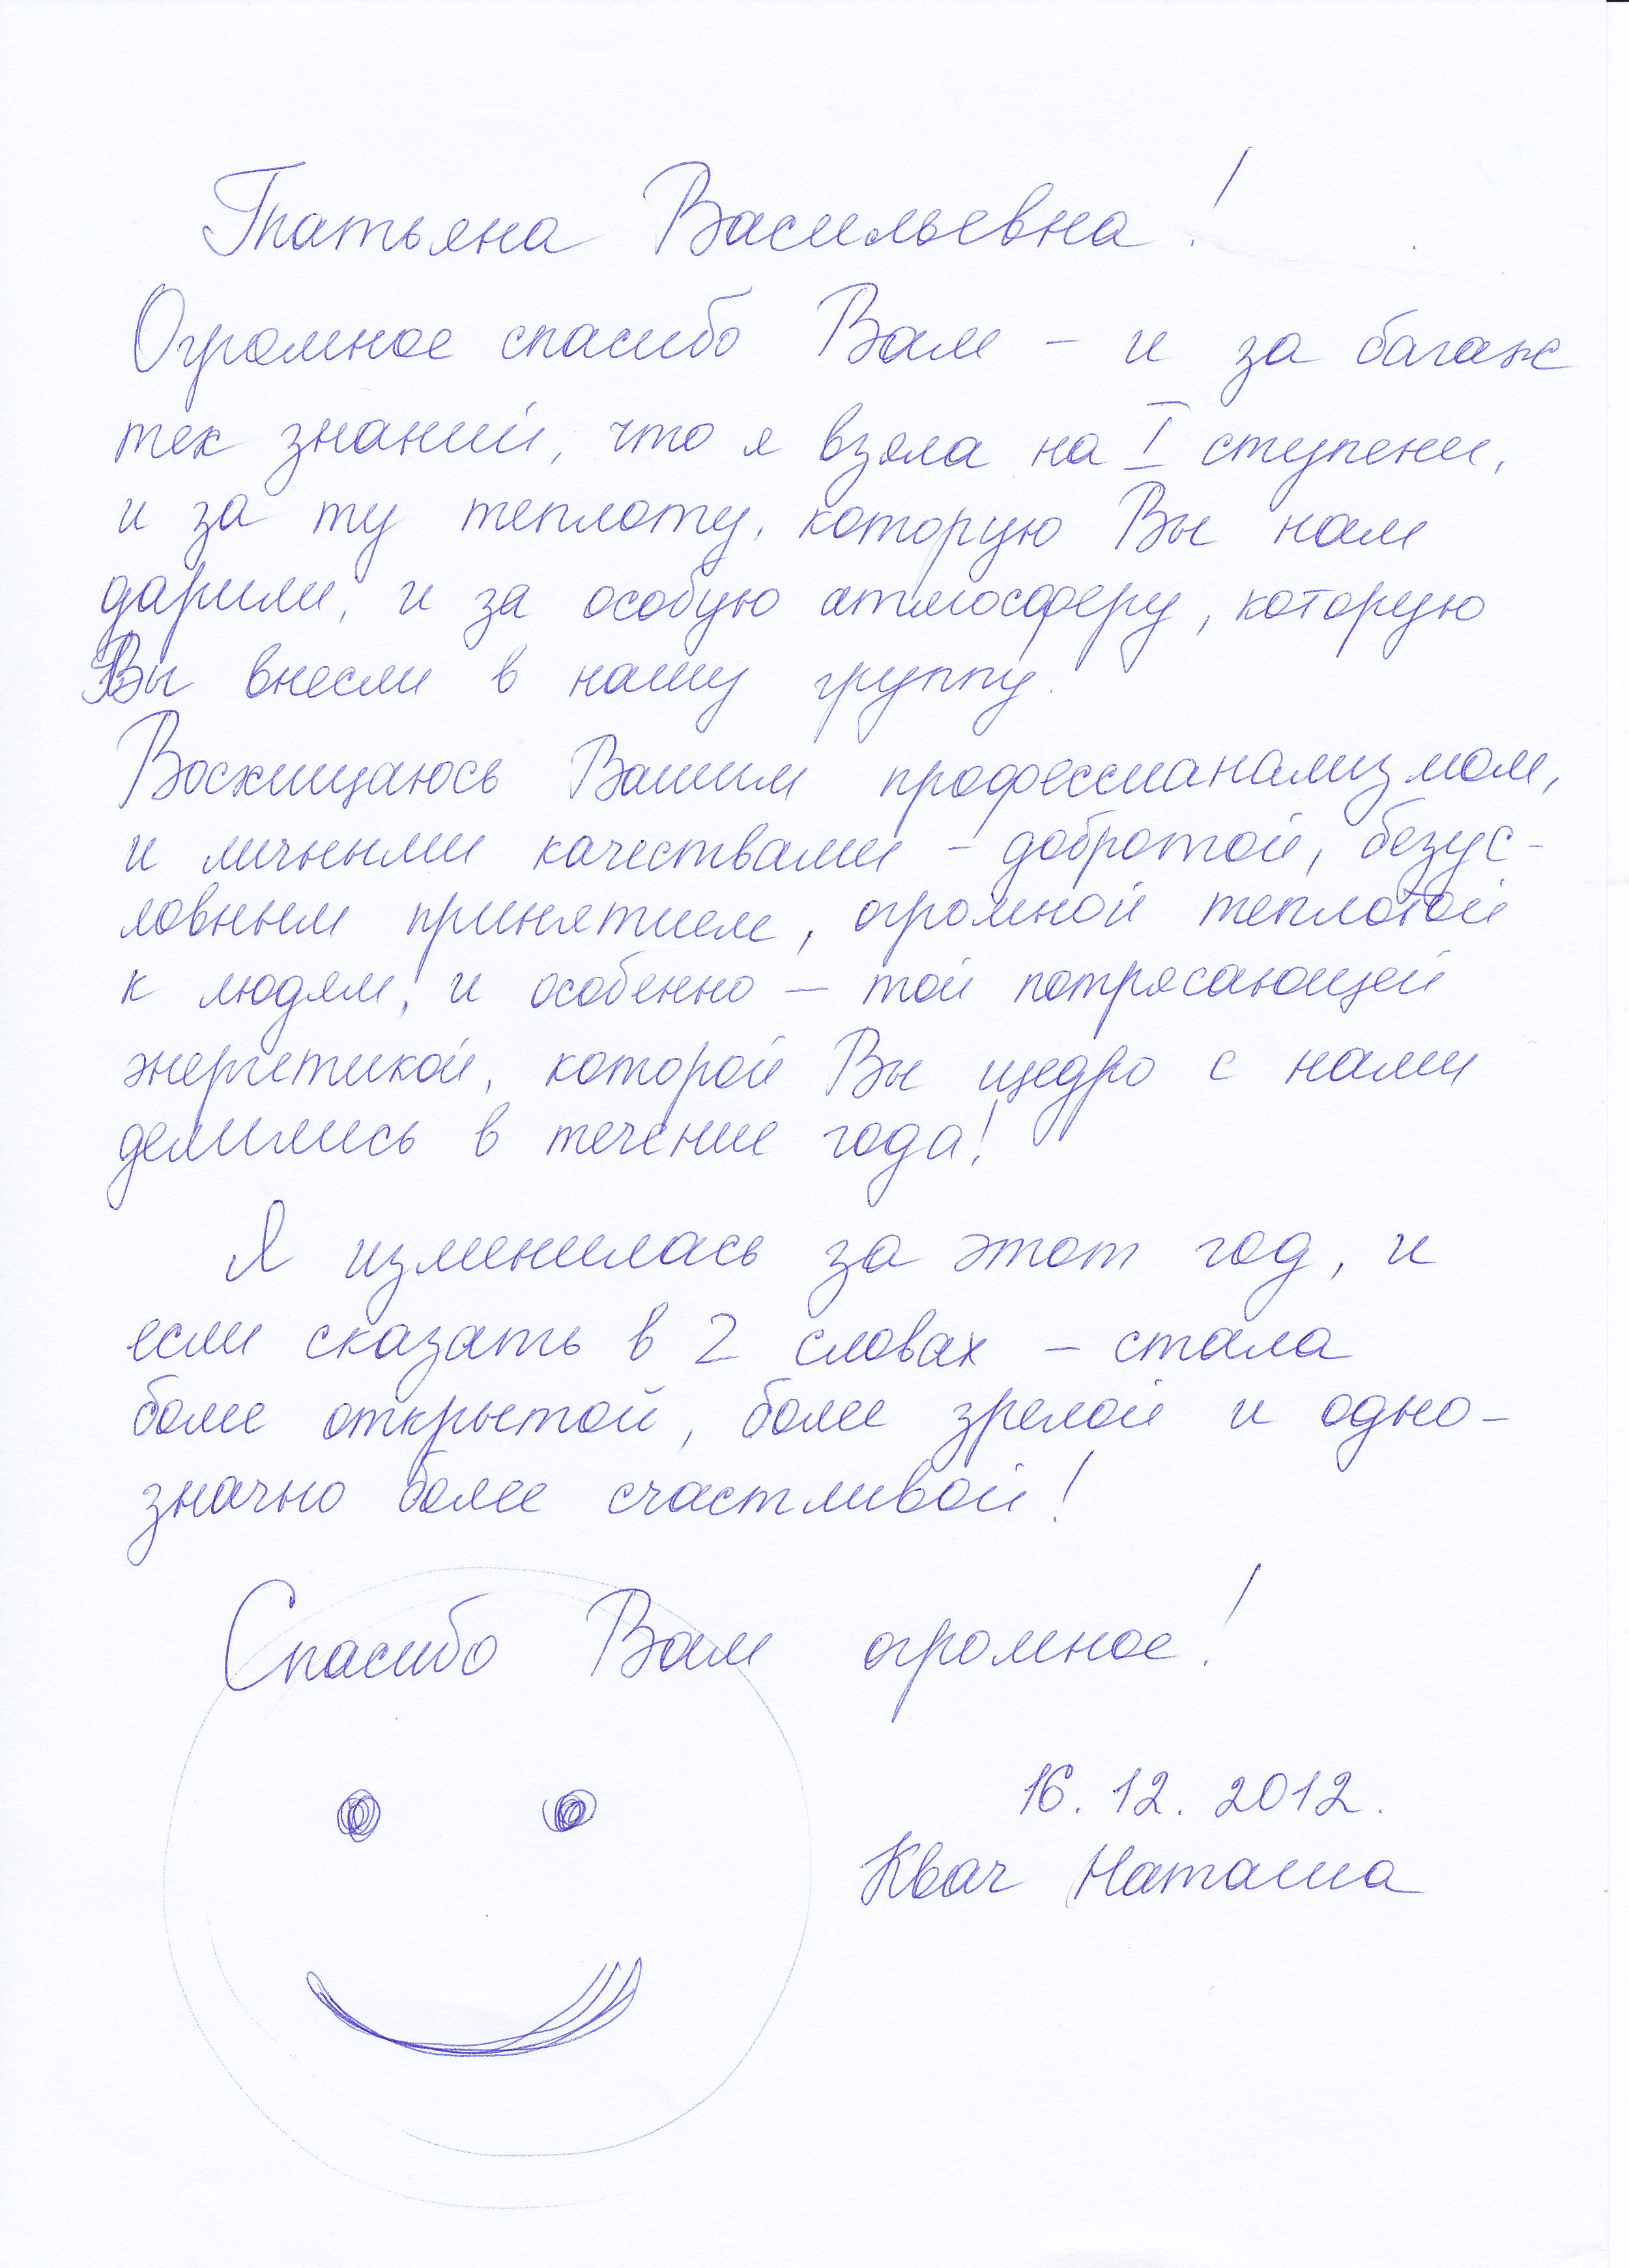 Татьяна Васильевна!
Огромное спасибо Вам – и за багаж
тех знаний, что я взяла на I ступени,
и за ту теплоту, которую Вы нам
дарили, и за особую атмосферу, которую
Вы внесли в нашу группу.
Восхищаюсь Вашим профессианализмом,
и личными качествами – добротой, безус-
ловным принятием, огромной теплотой
к людям, и особенно – той потрясающей
энергетикой, которой Вы щедро с нами
делились в течение года!
Я изменилась за этот год, и
если сказать в 2 словах – стала
более открытой, более зрелой и одно-
значно более счастливой!
Спасибо Вам огромное!
16.12.2012.
Квач Наташа